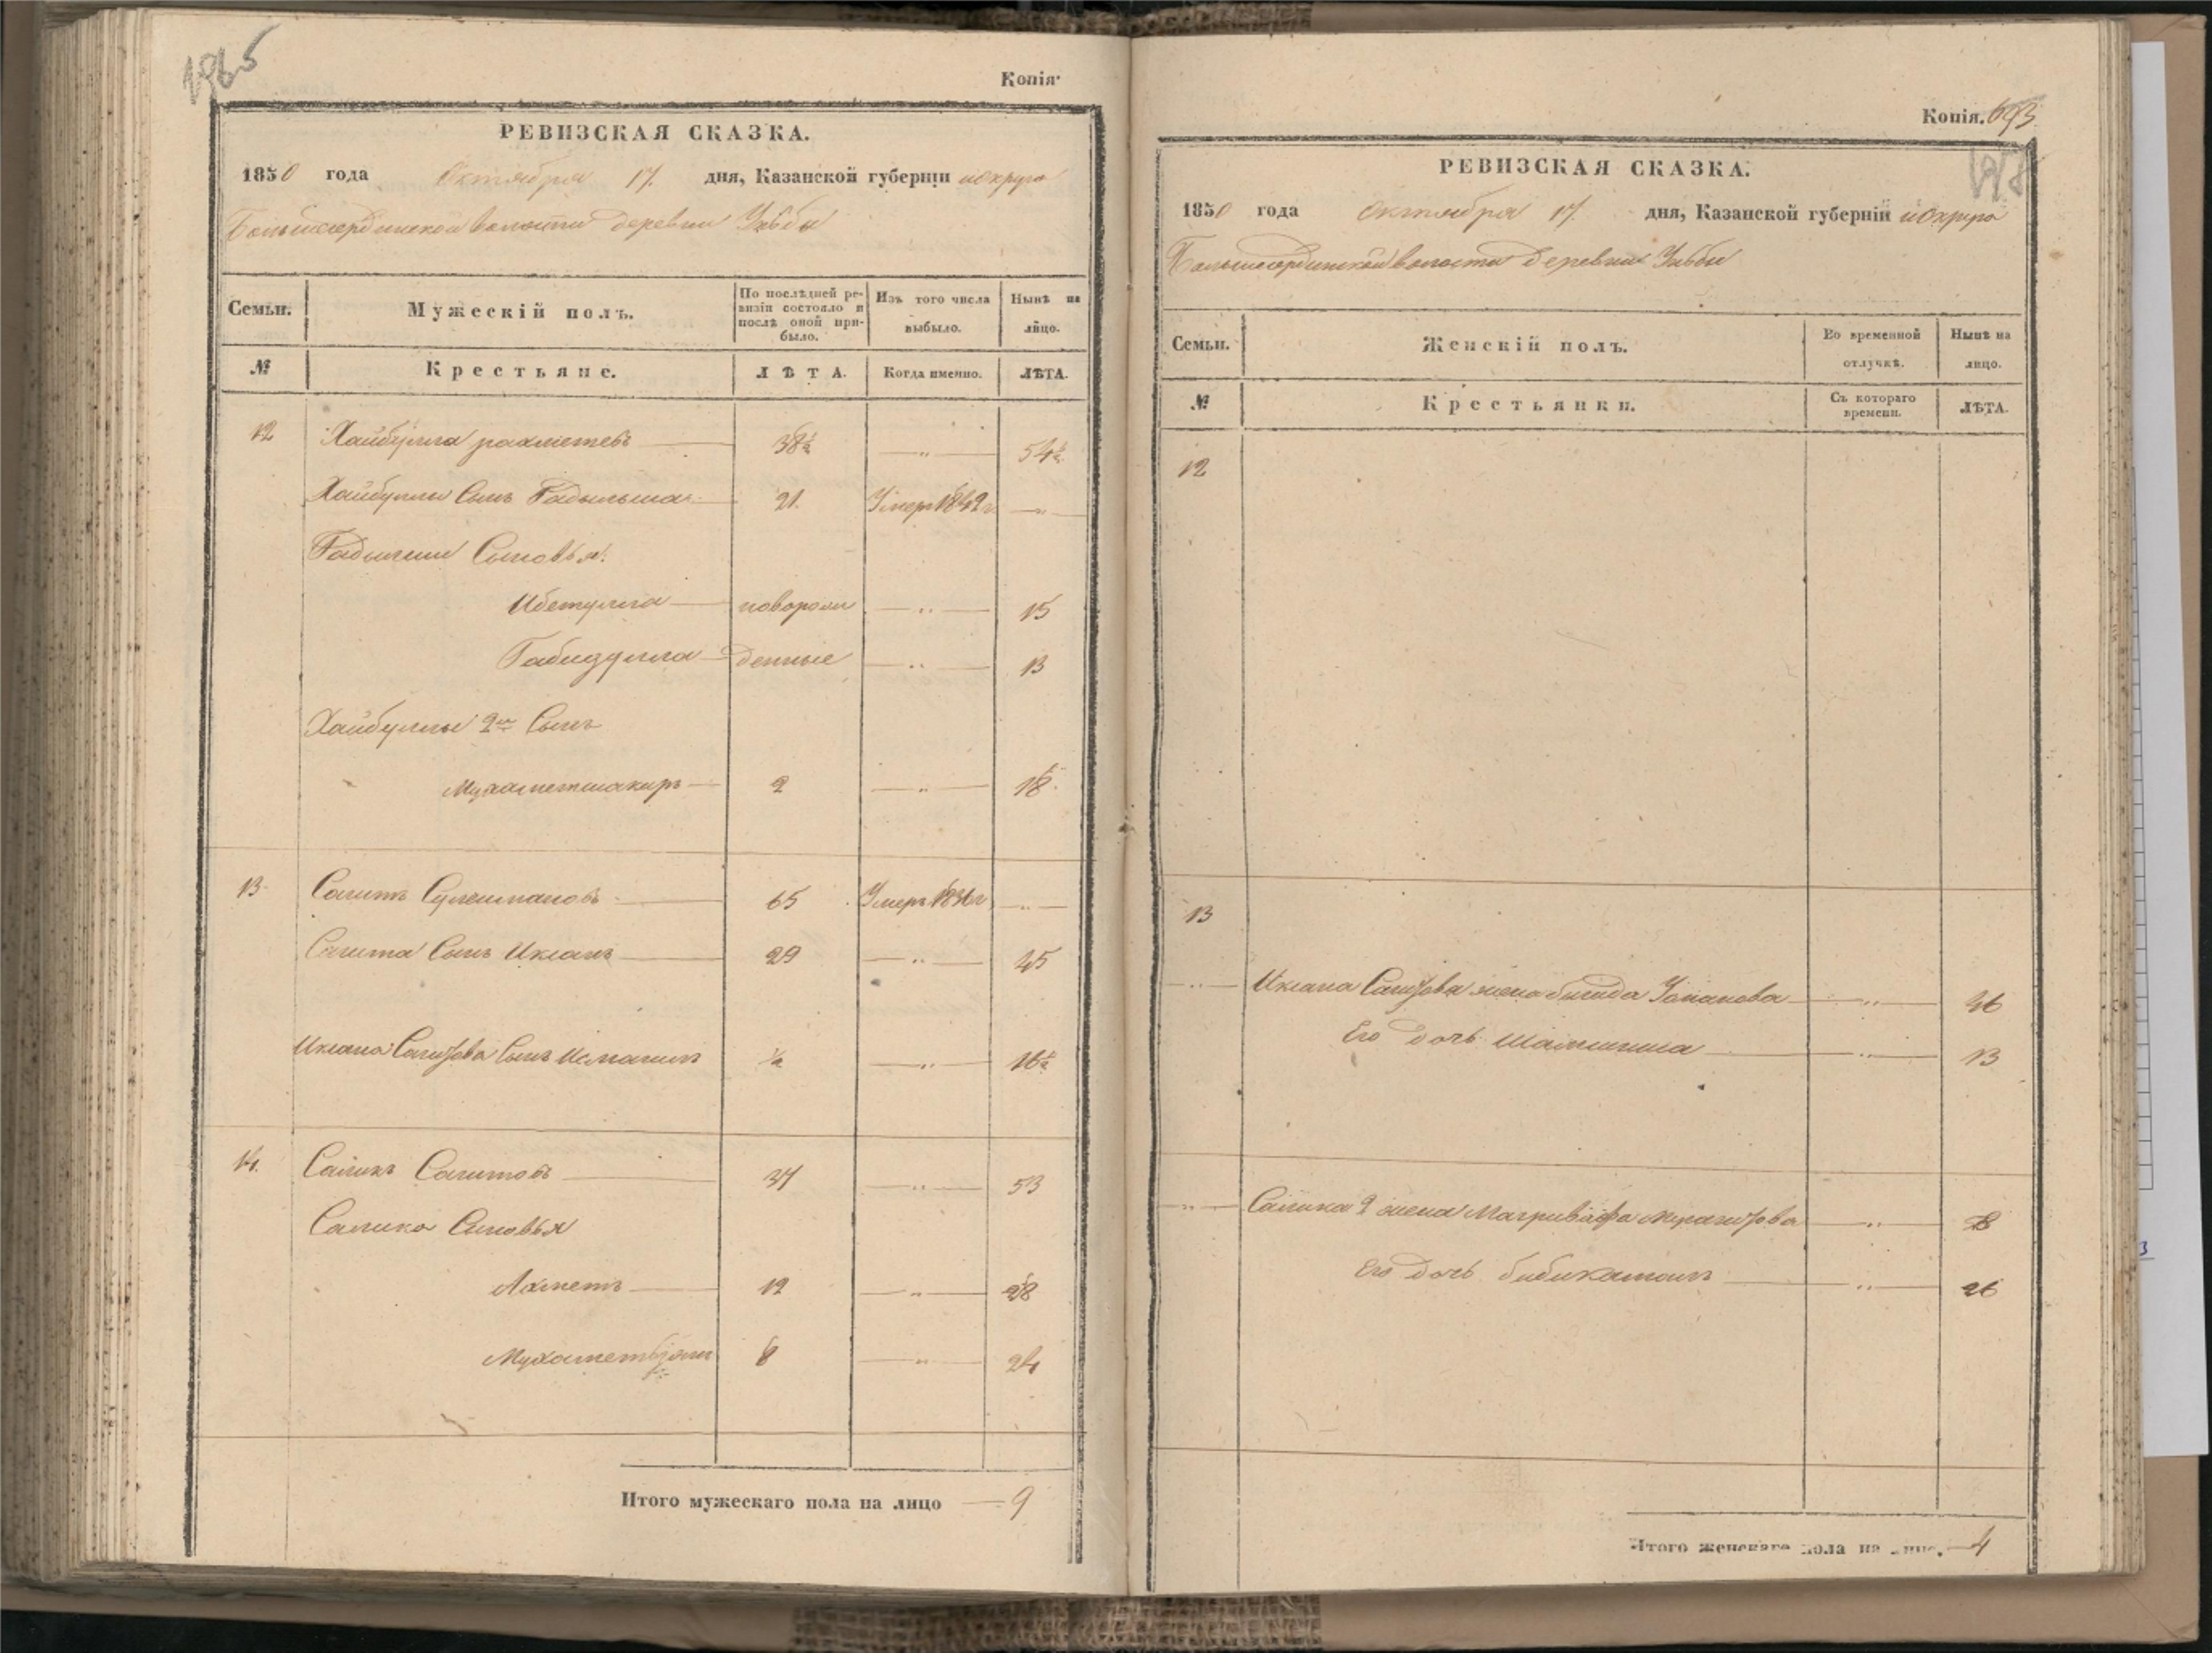 Копія
РЕВИЗСКАЯ СКАЗКА.
1850 года Октября 17. дня, Казанской губерніи и округа
Большесердинской волости деревни
Семьи. Мужескій полъ. По послѣдней ревизіи состояло и послѣ оной прибыло. Изъ того числа выбыло. Нынѣ на лицо.
№ Крестьяне. ЛѢТА. Когда именно. ЛѢТА.
12 Хайбулла рахметевъ 38½ — „ — 54½
Хайбуллы Сынъ Гадыльша 21. Умеръ 1842 г — „ —
Гадылши Сыновья:
Ибетулла новорож — „ — 15
Габидулла денные — „ — 13
Хайбуллы 2й Сынъ
Мухаметшакиръ 2 — „ — 18
13 Сагитъ Сулеймановъ 65 Умеръ 1836 г — „ —
Сагита Сынъ Иксанъ 29 — „ — 45
Иксана Сагитова Сынъ Исмагилъ ½ — „ — 16½
14. Салихъ Сагитовъ 37 — „ — 53
Салиха Сыновья
Ахметъ 12 — „ — 28
8 — „ — 24
Итого мужескаго пола на лицо — 9
Копія. 693
РЕВИЗСКАЯ СКАЗКА.
1850 года Октября 17. дня, Казанской губерніи и округа
Большесердинской волости деревни
Семьи. Женскій полъ. Во временной отлучкѣ. Нынѣ на лицо.
№ Крестьянки. Съ котораго времени. ЛѢТА.
12
13
— „ — Иксана Сагитова жена — „ — 36
Его дочь — „ — 13
14
— „ — Салиха 2 жена — „ —
Его дочь Бибикамалъ — „ — 26
Итого женскаго пола на лицо. — 4